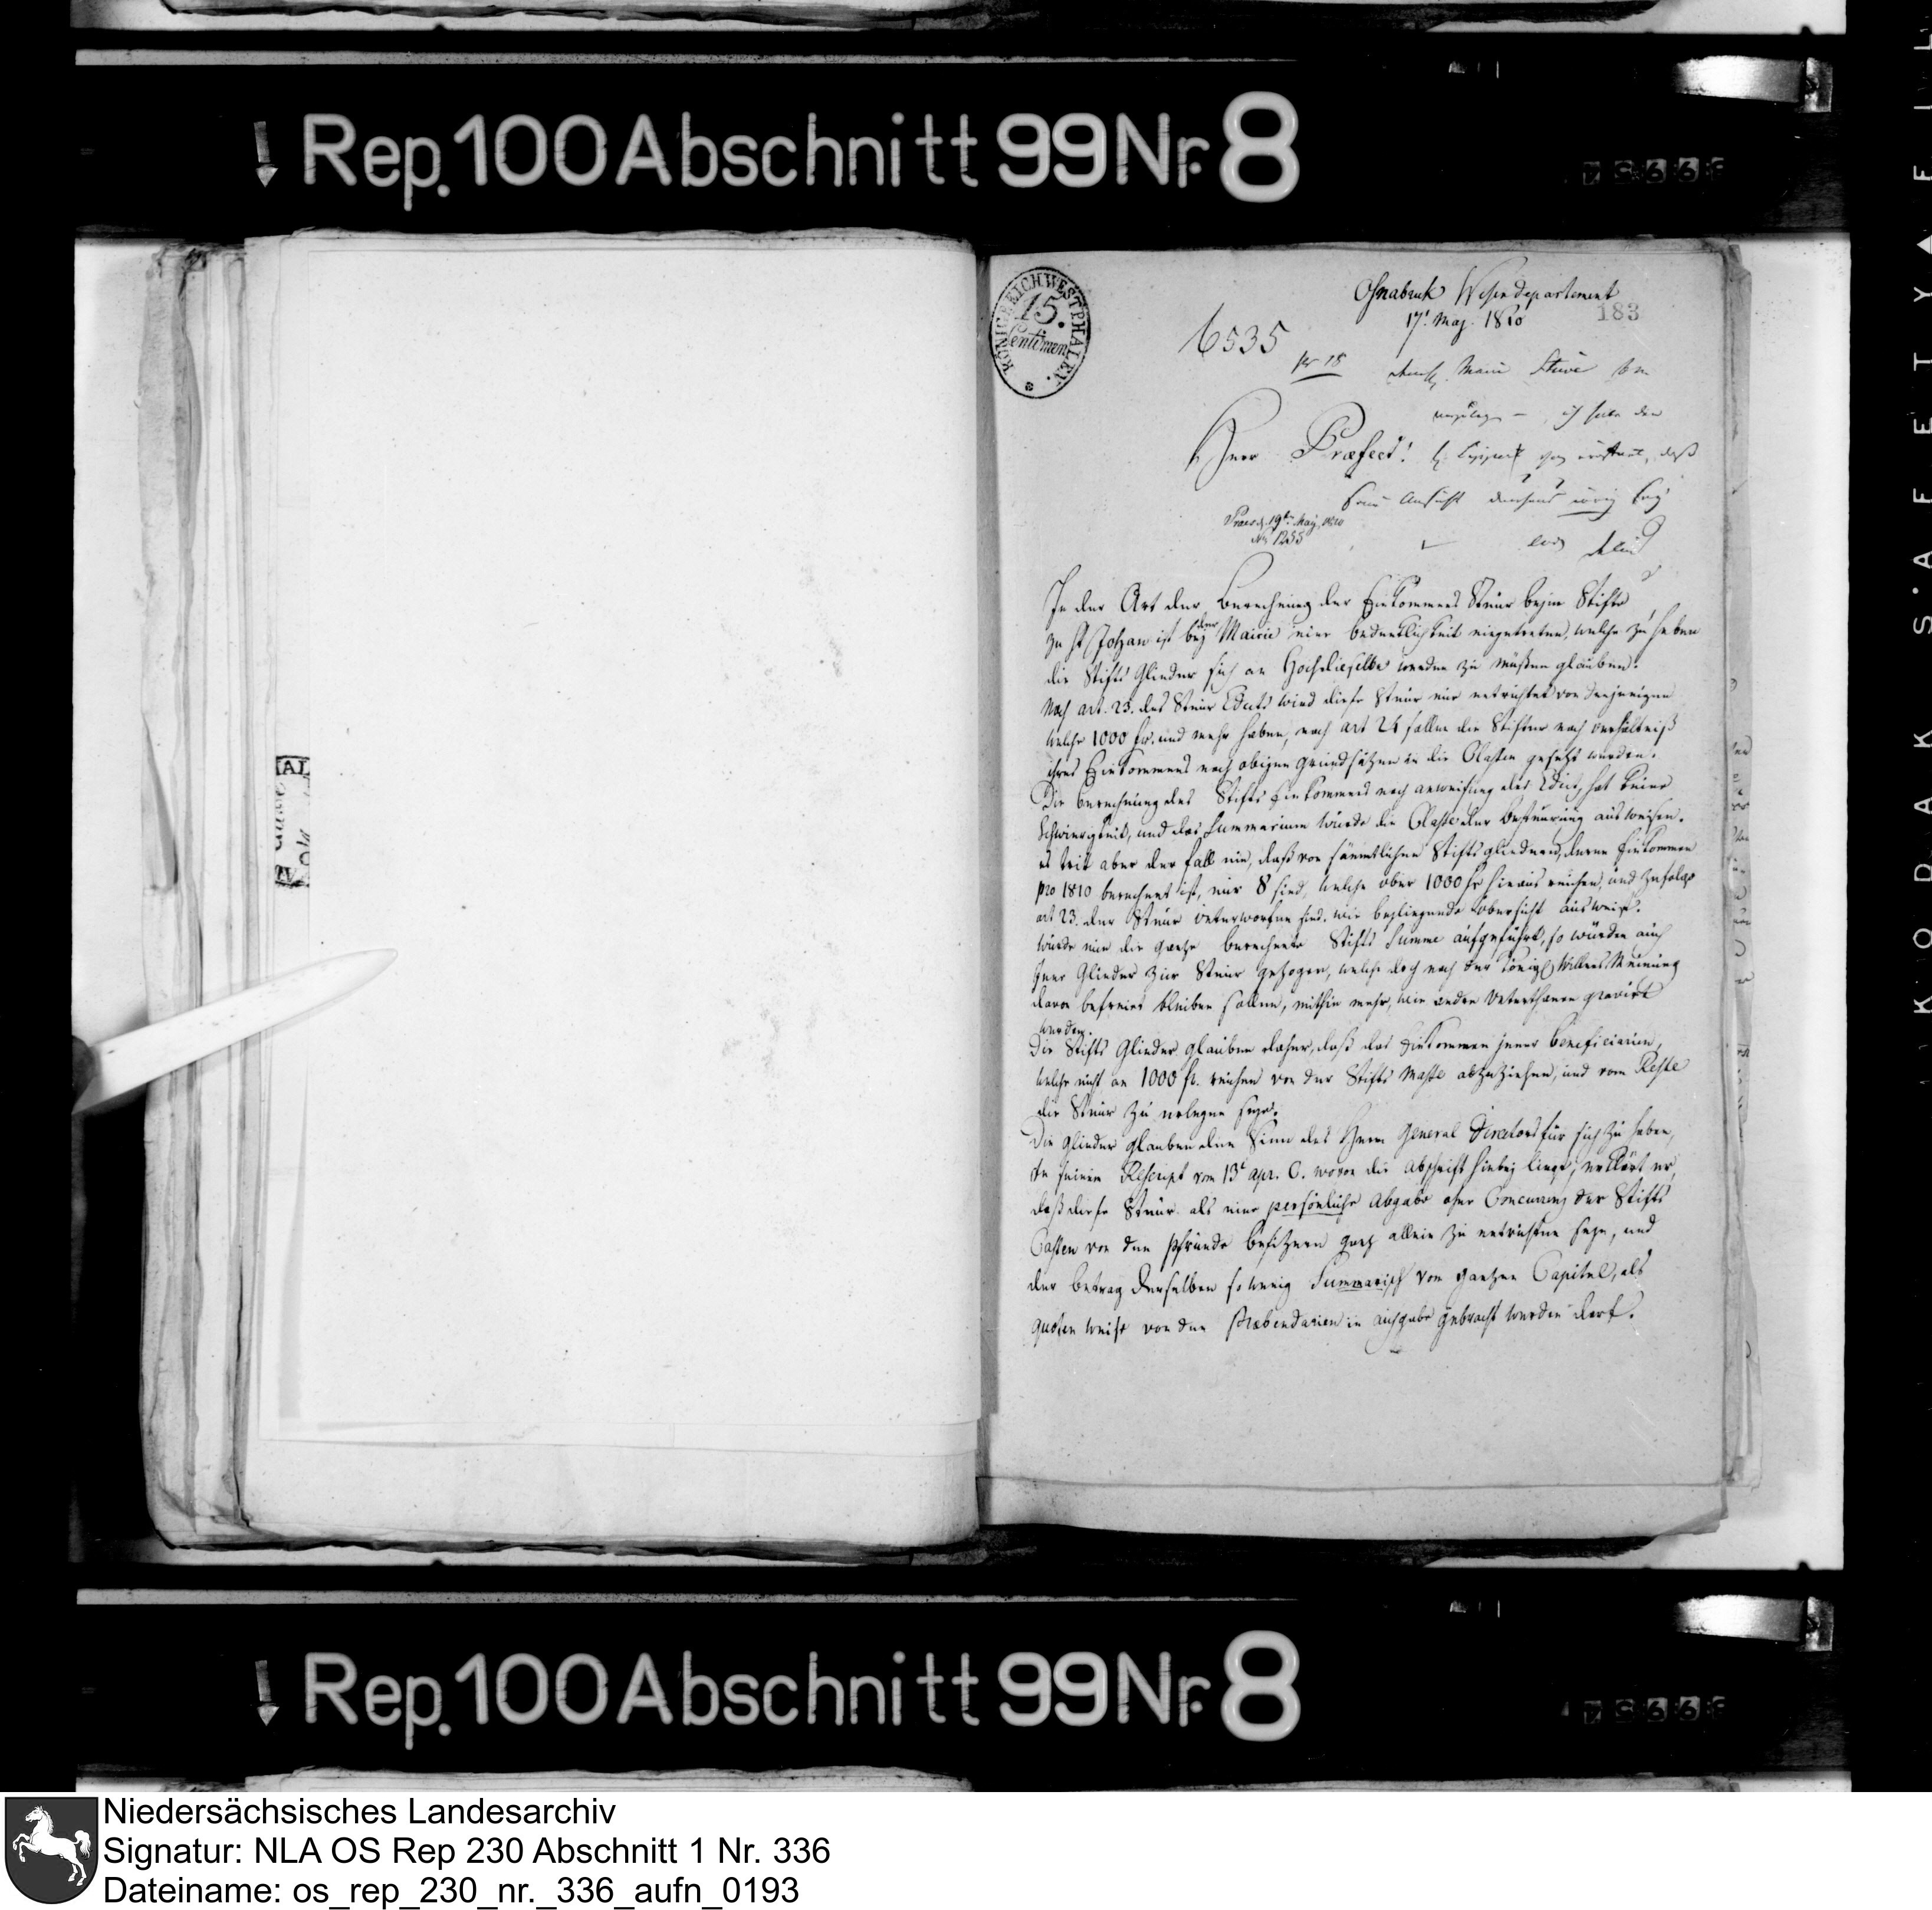 Rep. 100 Abschnitt 99 Nr. 8
KÖNIGREICH WESTPHALEN.
15.
Centimen
Osnabruk Weserdepartement
17t. May. 1810
183
6535
pr 18
Maire Stüve
ich habe den
Herr Præfect!
daß
seine Ansicht
Praes. d. 19ten May 1810
No. 1255
In der Art der Berechnung der Einkommens Steur beym Stifte
zu St Johan ist bey der Mairie eine bedenklichkeit eingetreten, welche zu heben
die Stifts Glieder sich an Hochdieselbe wenden zu müßen glauben.
Nach art. 23. des Steur Edicts wird diese Steur nur entrichtet von denjenigen
welche 1000 fr. und mehr haben, nach art 24 sollen die Stifter nach verhältniß
ihres Einkommens nach obigen grundsätzen in die Classen gesetzt werden.
Die berechnung des Stifts Einkommens nach anweisung des Edicts, hat keine
Schwierigkeit, und das Summarium würde die Classe der besteurung ausweisen.
es trit aber der fall ein, daß von sämmtlichen Stiftsgliedern, deren Einkommen
pro 1810 berechnet ist, nur 8 sind, welche über 1000 fr hinaus reichen, und zufolge
art 23. der Steur unterworfen sind. wie beyliegende übersicht ausweist.
würde nun die gantze berechnete Stifts Summe aufgeführt, so würden auch
jene Glieder zur Steur gezogen, welche doch nach der königl Willens Meinung
davon befreiet bleiben sollen, mithin mehr, wie andre Unterthanen gravirt
werden.
Die Stifts Glieder glauben daher, daß das Einkommen jener beneficiarien,
welche nicht an 1000 fr. reichen von der Stifts Masse abzuziehen, und vom Reste
die Steur zu erlegen seye.
Die glieder glauben den Sinn des Herrn General Directors für sich zu haben,
In seinem Rescript vom 13t apr. C. wovon die abschrift hiebey liegt, erklärt er,
daß diese Steur als eine persönliche Abgabe ohne Concurrenz der Stifts
Cassen von den Pfründe besitzern ganz allein zu entrichten seye, und
der betrag derselben so wenig Summarisch vom gantzen Capitel, als
quoten weise von den Præbendarien in ausgabe gebracht werden darf.
Rep. 100 Abschnitt 99 Nr. 8
KODAK SAFETY FIL
Niedersächsisches Landesarchiv
Signatur: NLA OS Rep 230 Abschnitt 1 Nr. 336
Dateiname: os_rep_230_nr._336_aufn_0193